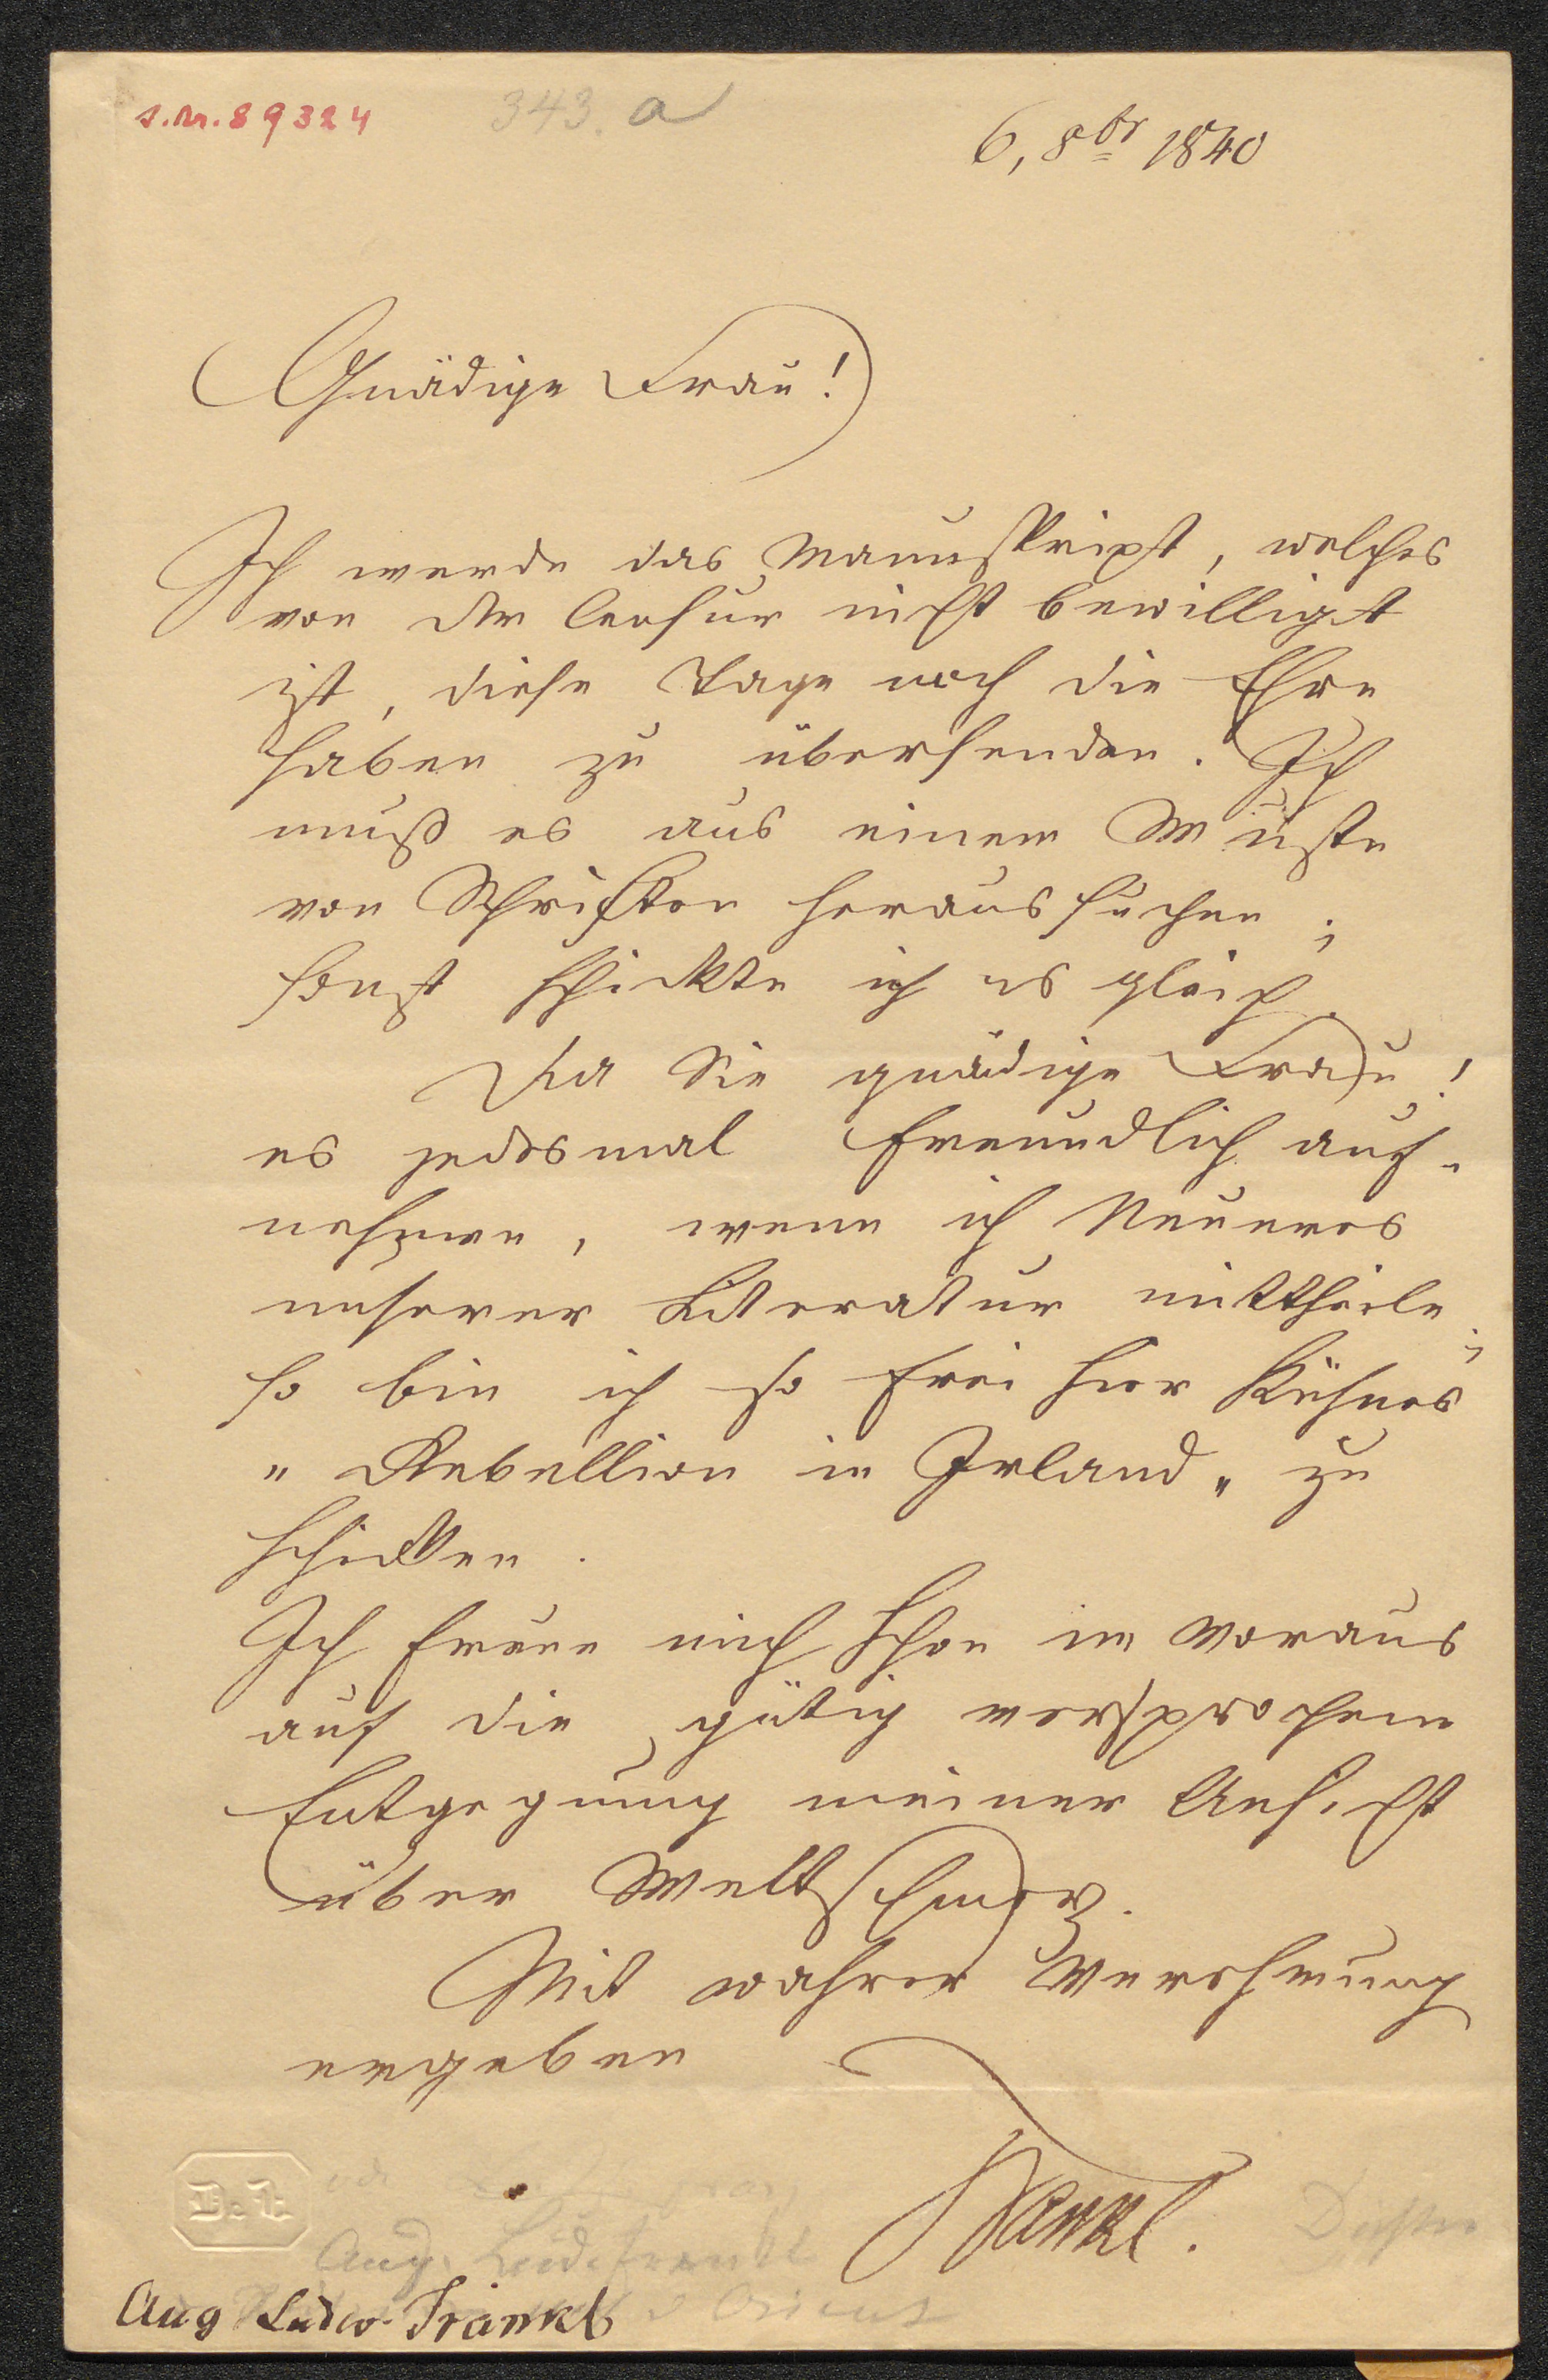 s.n. 89324
343. a
6, 8br 1840
Gnädige Frau!
Ich werde das Manuskript, welches
von der Censur nicht bewilligt
ist, diese Tage noch die Ehre
haben zu übersenden. Ich
muß es aus einem Wuste
von Schriften heraussuchen;
sonst schickte ich es gleich.
Da Sie gnädige Frau!
es jedesmal freundlich auf-
nehmen, wenn ich Neueres
unserer Literatur mittheile;
so bin ich so frei hier Kühnes
"Rebellion in Irland" zu
schicken.
Ich freue mich schon im Voraus
auf die gütig versprochene
Entgegnung meiner Ansicht
über Weltschmerz.
Mit wahrer Verehrung
ergeben
Frankl.
Dichter
Aug. Ludw Frankl
Orient
Aug Ludw. Fränkl